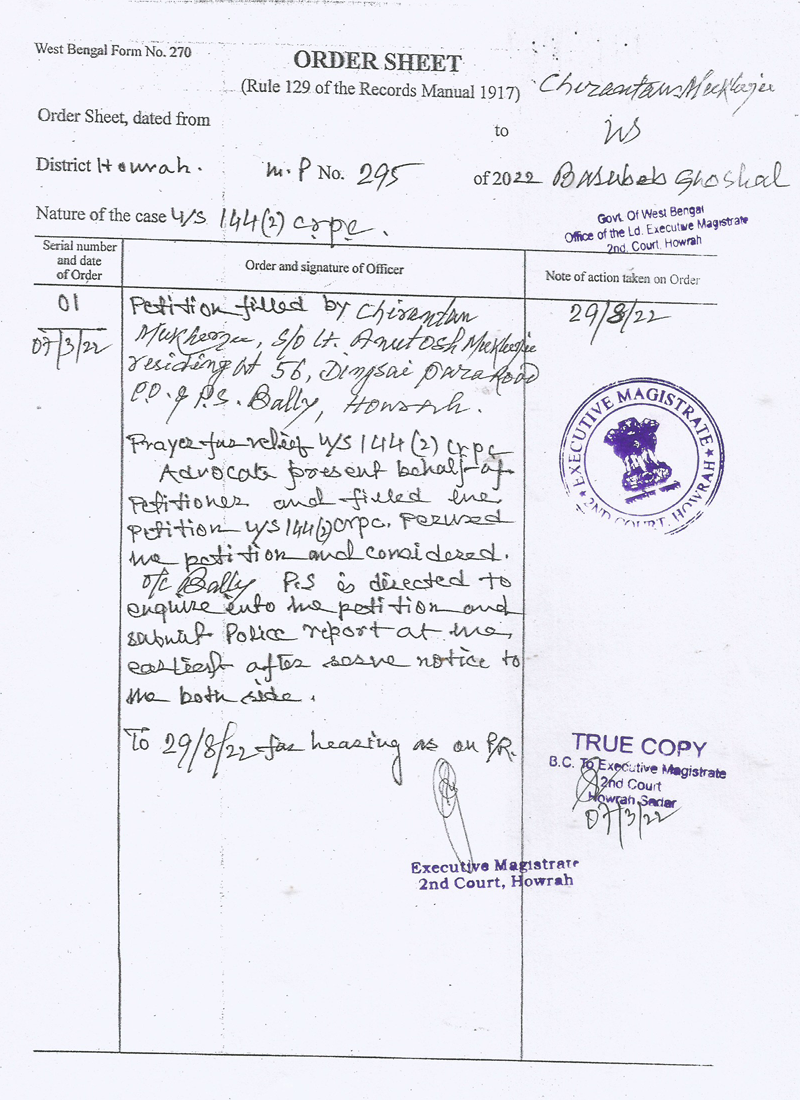 West Bengal Form No. 270
ORDER SHEET
(Rule 129 of the Records Manual 1917)
Chirantan Mukherjee
Order Sheet, dated from
to
VS
District Howrah.
M.P No. 295
of 2022
Basubeb Ghoshal
Nature of the case u/s 144(2) crpc.
Govt. Of West Bengal
Office of the Ld. Executive Magistrate
2nd. Court, Howrah
Serial number
and date
of Order
Order and signature of Officer
Note of action taken on Order
01
07/3/22
Petition filled by Chirantan
Mukherjee, S/O Lt. Anutosh Mukherjee
residing at 56, Dingsai para Road
P.O. & P.S. Bally, Howrah.
Prayer for relief u/s 144(2) crpc
Advocate present behalf of
petitioner and filled the
petition u/s 144(2) crpc. Perused
the petition and considered.
O/C Bally P.S is directed to
enquire into the petition and
submit Police report at the
earliest after serve notice to
the both side.
To 29/8/22 for hearing as on P.R.
Executive Magistrate
2nd Court, Howrah
29/8/22
EXECUTIVE MAGISTRATE
2ND COURT, HOWRAH
TRUE COPY
B.C. To Executive Magistrate
2nd Court
Howrah Sadar
07/3/22